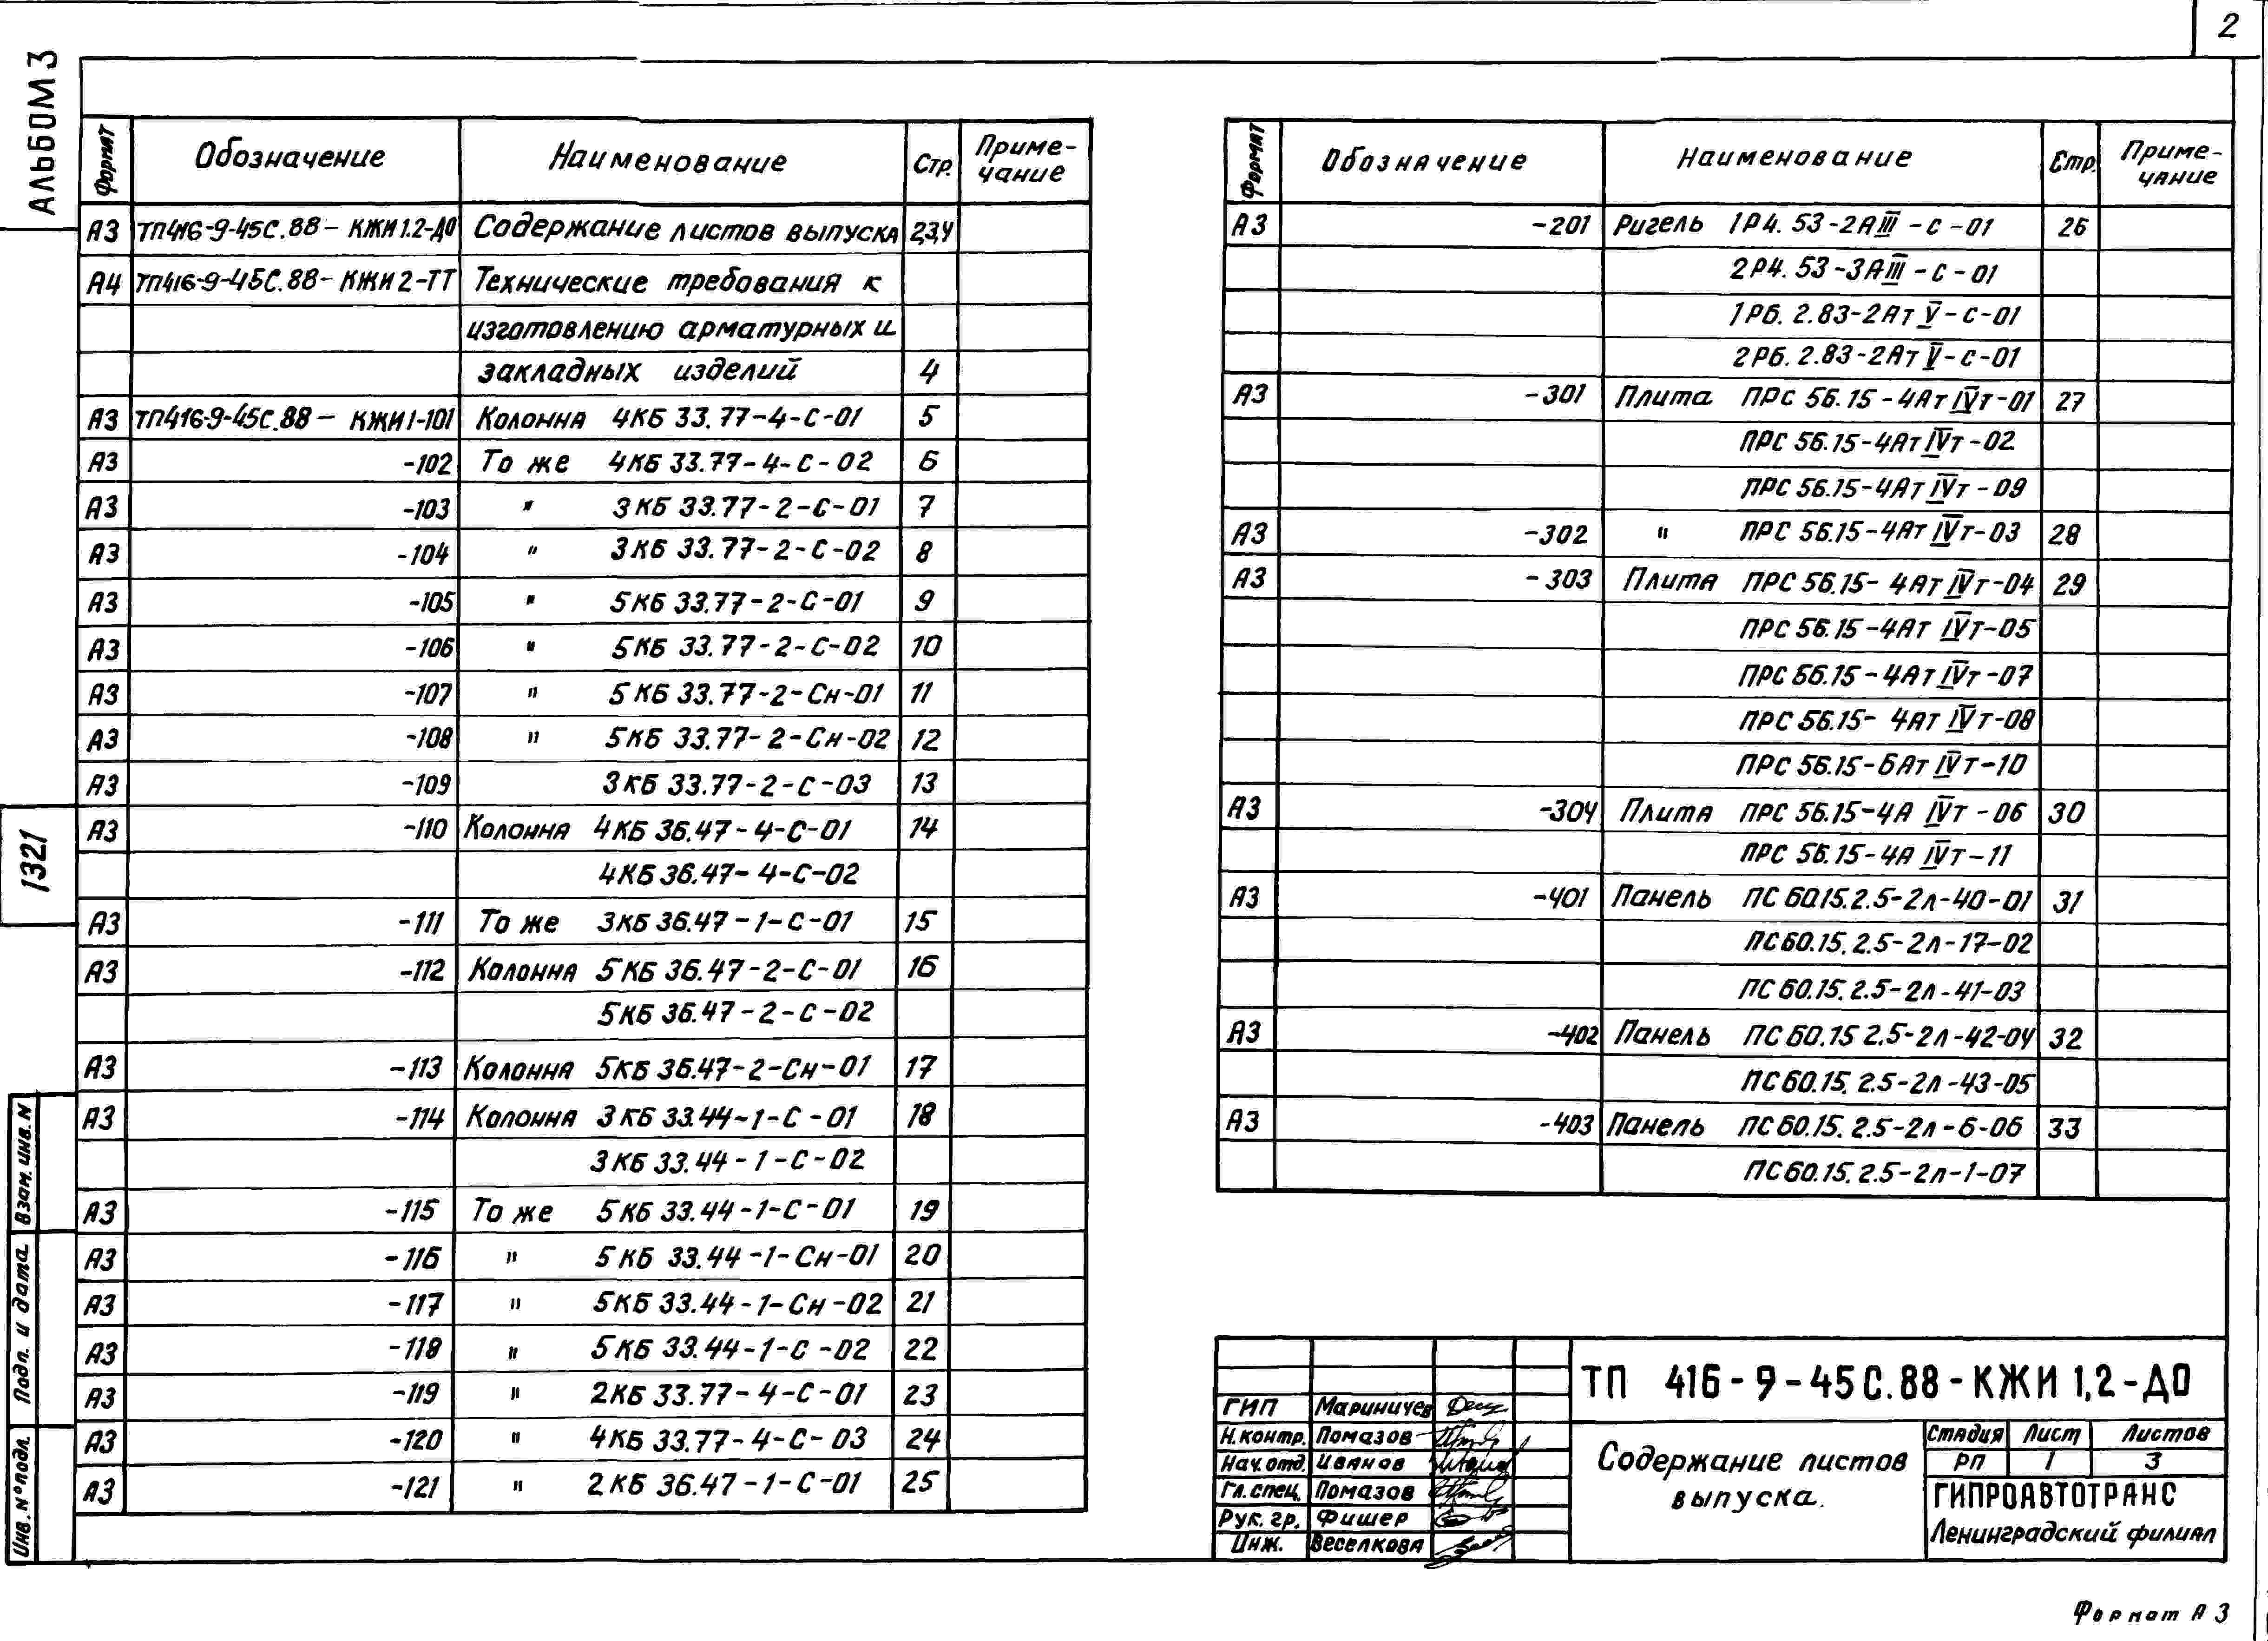 2
АЛЬБОМ 3
Формат Обозначение Наименование Стр. Приме-
чание
А3 ТП416-9-45С.88- КЖИ1.2-ДО Содержание листов выпуска 2,3,4
А4 ТП416-9-45С.88- КЖИ2-ТТ Технические требования к
изготовлению арматурных и
закладных изделий 4
А3 ТП416-9-45С.88- КЖИ1-101 Колонна 4КБ 33.77-4-С-01 5
А3 -102 То же 4КБ 33.77-4-С-02 6
А3 -103 " 3КБ 33.77-2-С-01 7
А3 -104 " 3КБ 33.77-2-С-02 8
А3 -105 " 5КБ 33.77-2-С-01 9
А3 -106 " 5КБ 33.77-2-С-02 10
А3 -107 " 5КБ 33.77-2-Сн-01 11
А3 -108 " 5КБ 33.77-2-Сн-02 12
А3 -109 3КБ 33.77-2-С-03 13
А3 -110 Колонна 4КБ 36.47-4-С-01 14
4КБ 36.47-4-С-02
А3 -111 То же 3КБ 36.47-1-С-01 15
А3 -112 Колонна 5КБ 36.47-2-С-01 16
5КБ 36.47-2-С-02
А3 -113 Колонна 5КБ 36.47-2-Сн-01 17
А3 -114 Колонна 3КБ 33.44-1-С-01 18
3КБ 33.44-1-С-02
А3 -115 То же 5КБ 33.44-1-С-01 19
А3 -116 " 5КБ 33.44-1-Сн-01 20
А3 -117 " 5КБ 33.44-1-Сн-02 21
А3 -118 " 5КБ 33.44-1-С-02 22
А3 -119 " 2КБ 33.77-4-С-01 23
А3 -120 " 4КБ 33.77-4-С-03 24
А3 -121 " 2КБ 36.47-1-С-01 25
Формат Обозначение Наименование Стр. Приме-
чание
А3 -201 Ригель 1Р4.53-2АIII-С-01 26
2Р4.53-3АIII-С-01
1Р6.2.83-2АтV-С-01
2Р6.2.83-2АтV-С-01
А3 -301 Плита ПРС 56.15-4АтIVт-01 27
ПРС 56.15-4АтIVт-02
ПРС 56.15-4АтIVт-09
А3 -302 " ПРС 56.15-4АтIVт-03 28
А3 -303 Плита ПРС 56.15-4АтIVт-04 29
ПРС 56.15-4АтIVт-05
ПРС 56.15-4АтIVт-07
ПРС 56.15-4АтIVт-08
ПРС 56.15-6АтIVт-10
А3 -304 Плита ПРС 56.15-4АIVт-06 30
ПРС 56.15-4АIVт-11
А3 -401 Панель ПС 60.15.2.5-2л-40-01 31
ПС60.15.2.5-2л-17-02
ПС60.15.2.5-2л-41-03
А3 -402 Панель ПС60.15 2.5-2л-42-04 32
ПС60.15.2.5-2л-43-05
А3 -403 Панель ПС60.15.2.5-2л-6-06 33
ПС60.15.2.5-2л-1-07
1321
Взам. инв. N
Подп. и дата
Инв. N° подл.
ТП 416-9-45С.88-КЖИ 1,2-ДО
ГИП Мариничев
Н.контр. Помазов
Нач.отд. Иванов
Гл.спец. Помазов
Рук. гр. Фишер
Инж. Веселкова
Содержание листов
выпуска.
Стадия Лист Листов
РП 1 3
ГИПРОАВТОТРАНС
Ленинградский филиал
Формат А3